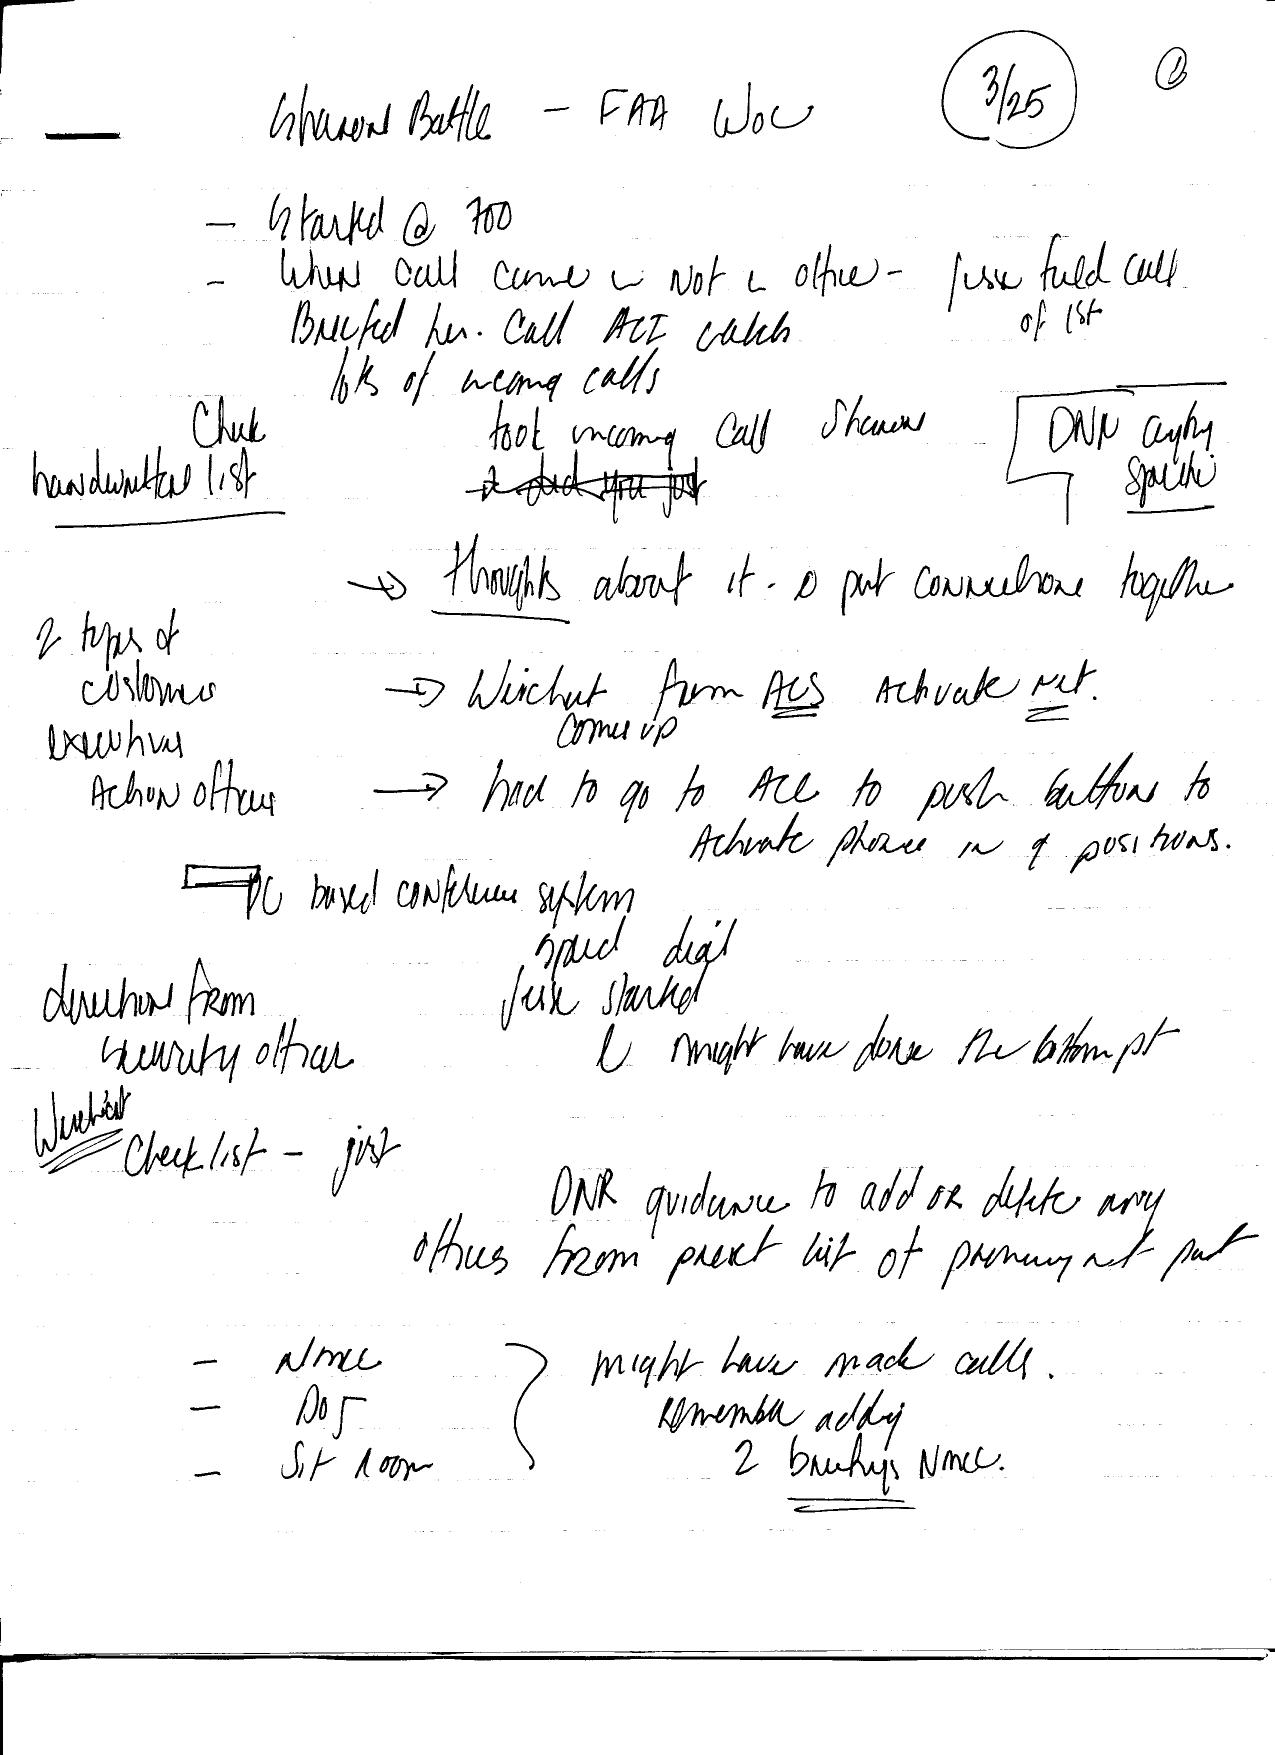 3/25
1
Sharon Battle - FAA WOC
- Started @ 700
- When call came in Not in office - Jesse field call
of 1st
Briefed her. Call ACI watch
lots of incoming calls
Check
handwritten list
took incoming call Sharon
I did you just
DNR anything
specific
→ thoughts about it. put connections together
2 types of
customers
executives
Action officers
→ Wirchut from ACS Activate net.
comes up
→ had to go to ACC to push buttons to
Activate phones in 9 positions.
PC based conference system
speed dial
Jesse started
directions from
security officer
might have done the bottom pt
Wirchut
Checklist - just
DNR guidance to add or delete any
offices from preset list of primary net part
- NMCC
- DOJ
- Sit Room
might have made calls.
remember adding
2 NMCC.